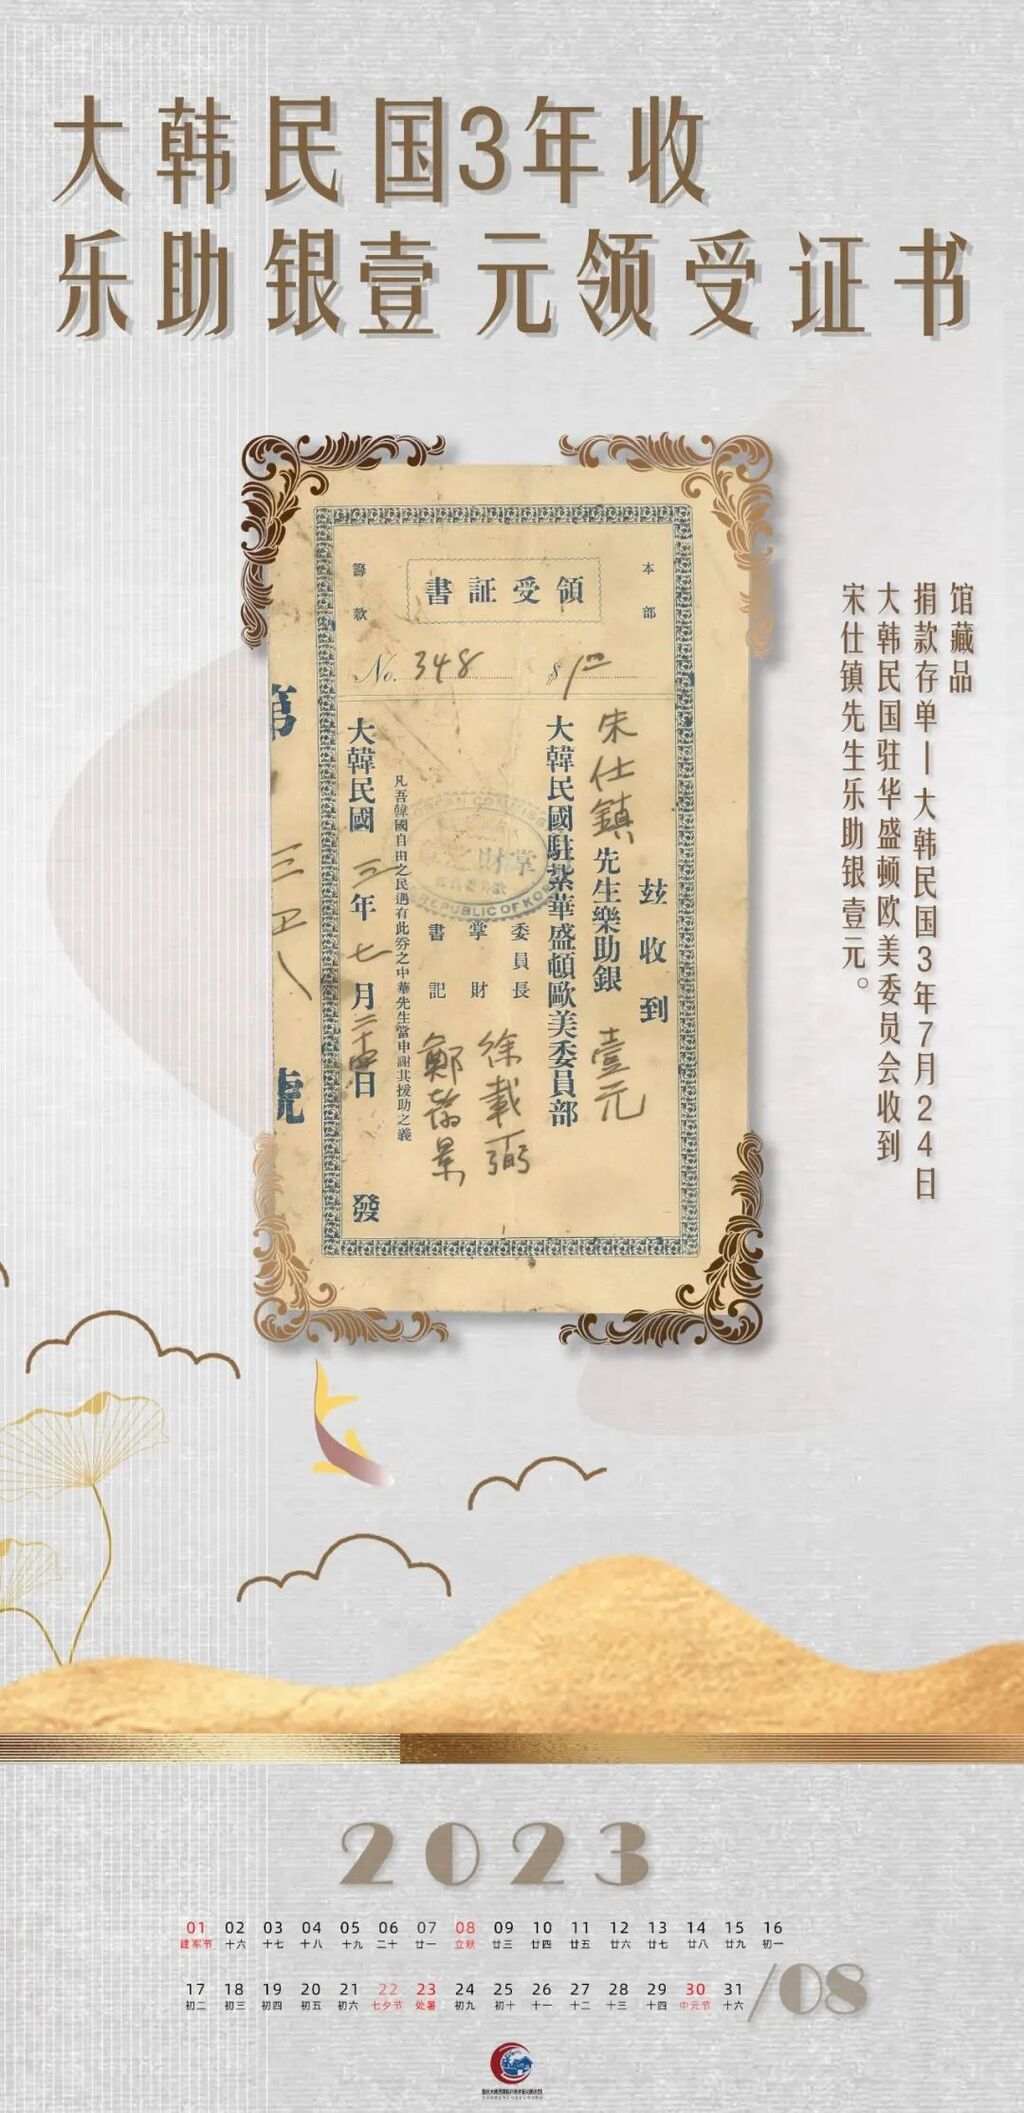 大韩民国3年收
乐助银壹元领受证书
馆藏品
捐款存单—大韩民国3年7月24日
大韩民国驻华盛顿欧美委员会收到
宋仕镇先生乐助银壹元。
本部
領受証書
籌款
No. 348
$1⁰⁰
玆收到
宋仕鎮先生樂助銀壹元
大韓民國駐紮華盛頓歐美委員部
委員長 徐載弼
掌財
書記 鄭
凡吾韓國自由之民遇有此劵之中華先生當申謝其援助之義
大韓民國三年七月二十四日發
KOREAN COMMISS
掌財之
REPUBLIC OF KO
第
三四八
號
2023
01 02 03 04 05 06 07 08 09 10 11 12 13 14 15 16
建军节 十六 十七 十八 十九 二十 廿一 立秋 廿三 廿四 廿五 廿六 廿七 廿八 廿九 初一
17 18 19 20 21 22 23 24 25 26 27 28 29 30 31
初二 初三 初四 初五 初六 七夕节 处暑 初九 初十 十一 十二 十三 十四 中元节 十六
/08